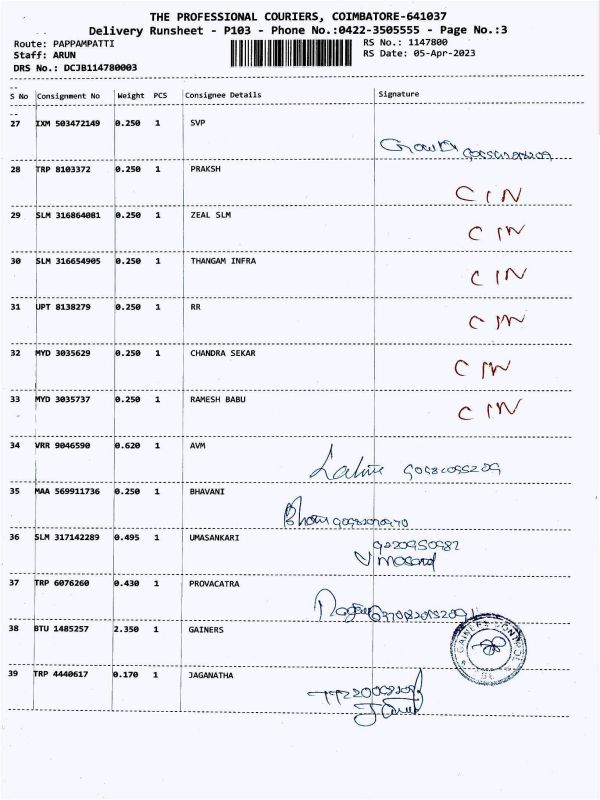 THE PROFESSIONAL COURIERS, COIMBATORE-641037
Delivery Runsheet - P103 - Phone No.:0422-3505555 - Page No.:3
Route: PAPPAMPATTI RS No.: 1147800
Staff: ARUN RS Date: 05-Apr-2023
DRS No.: DCJB114780003
--
S No Consignment No Weight PCS Consignee Details Signature
--
27 IXM 503472149 0.250 1 SVP
28 TRP 8103372 0.250 1 PRAKSH
CIN
29 SLM 316864081 0.250 1 ZEAL SLM
CIN
30 SLM 316654905 0.250 1 THANGAM INFRA
CIN
31 UPT 8138279 0.250 1 RR
CIN
32 MYD 3035629 0.250 1 CHANDRA SEKAR
CIN
33 MYD 3035737 0.250 1 RAMESH BABU
CIN
34 VRR 9046590 0.620 1 AVM
35 MAA 569911736 0.250 1 BHAVANI
36 SLM 317142289 0.495 1 UMASANKARI
37 TRP 6076260 0.430 1 PROVACATRA
38 BTU 1485257 2.350 1 GAINERS
39 TRP 4440617 0.170 1 JAGANATHA